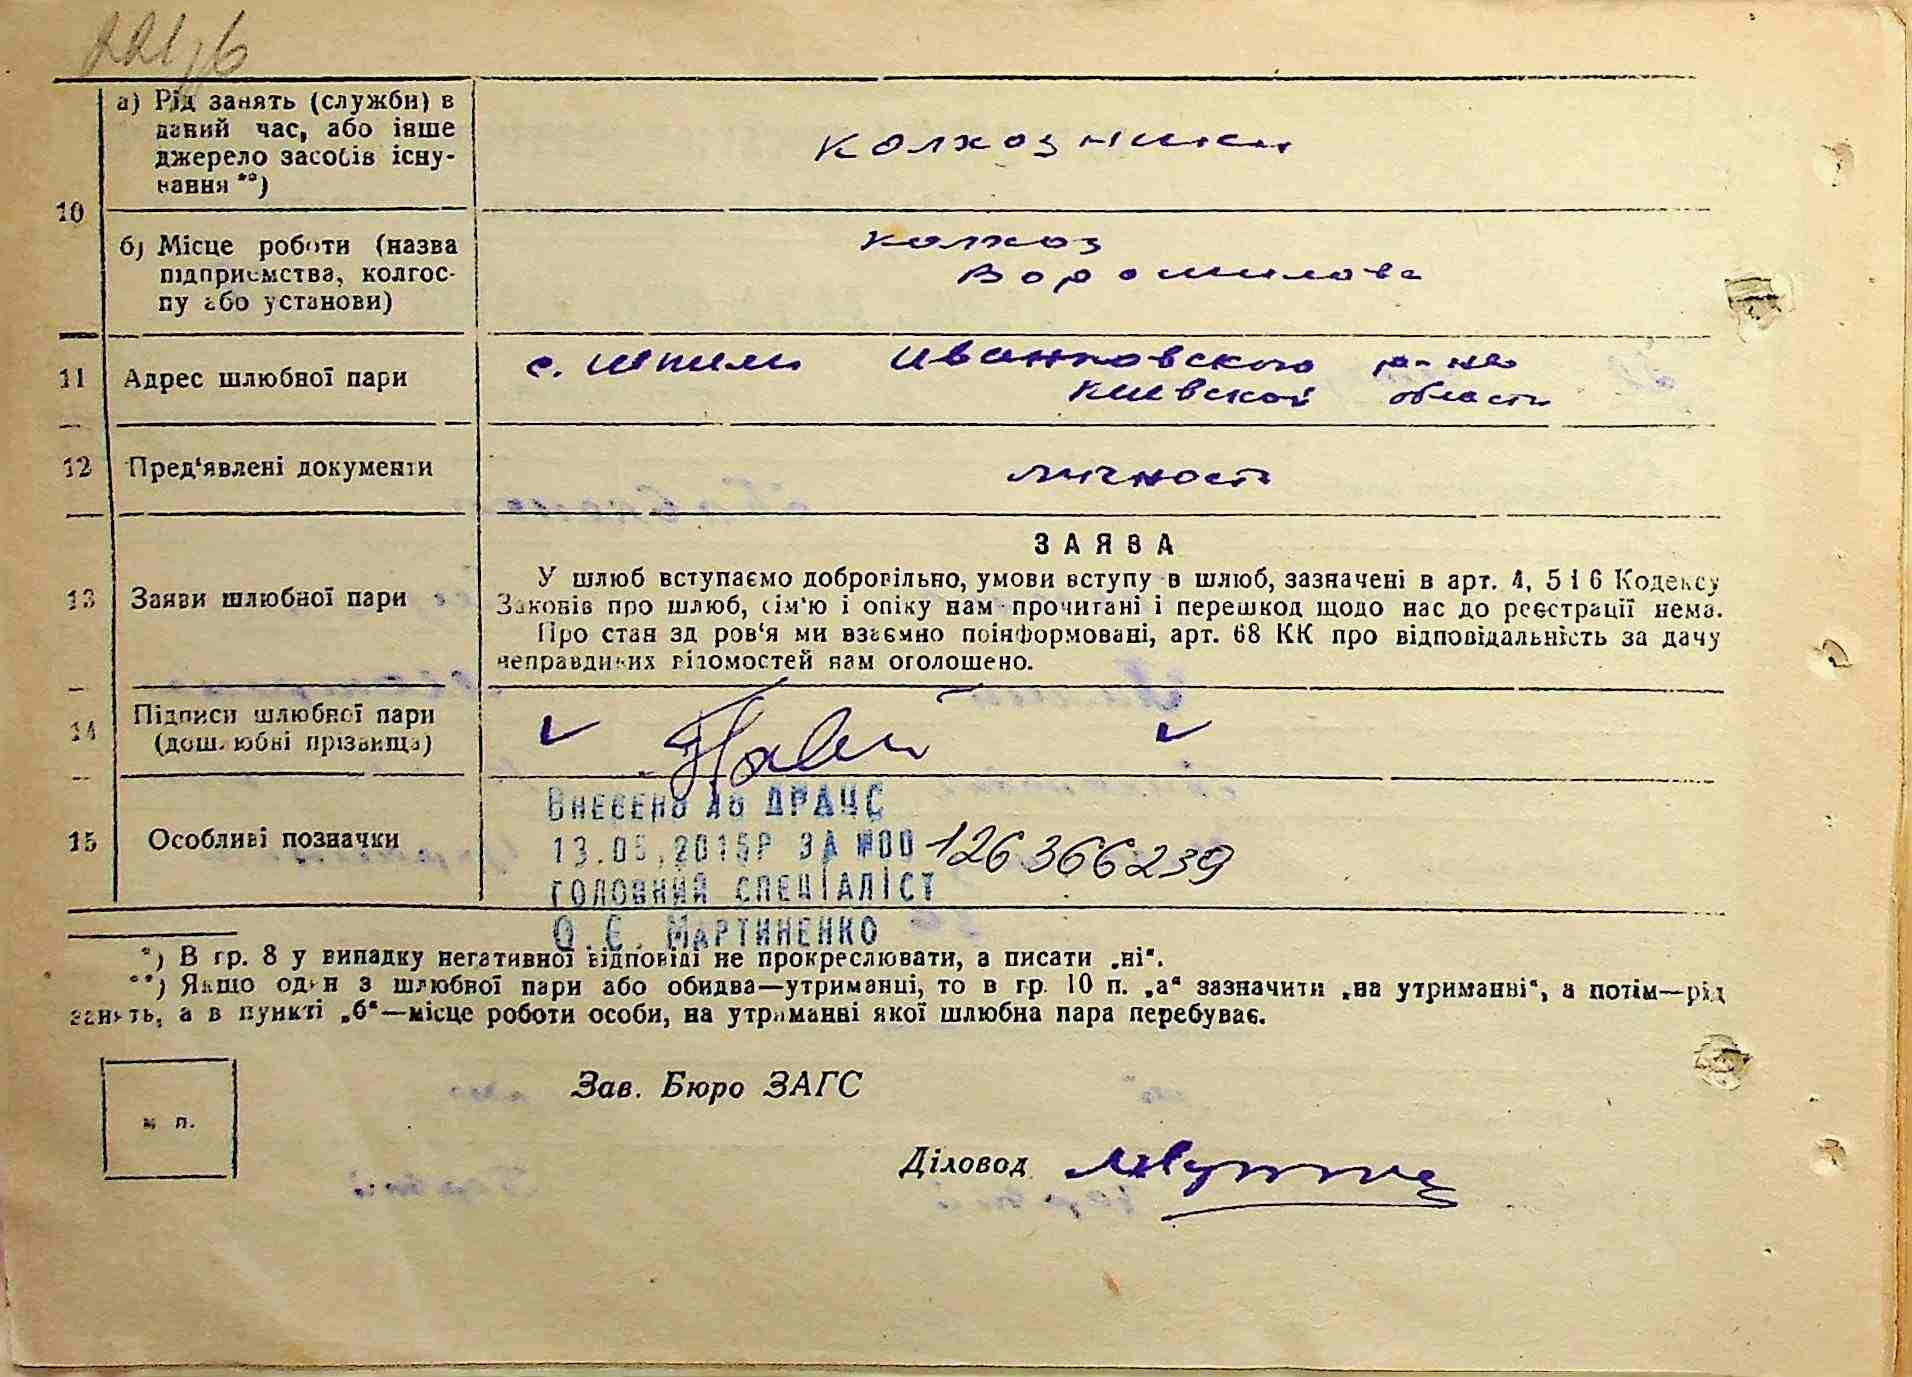 221/б
а) Рід занять (служби) в
даний час, або інше
джерело засобів існу-
вання **)
колхозники
10
б) Місце роботи (назва
підприємства, колгос-
пу або установи)
колхоз
Ворошилова
11 Адрес шлюбної пари
с. Шпили Иванковского р-на
Киевской области
12 Пред'явлені документи
личность
13 Заяви шлюбної пари
ЗАЯВА
У шлюб вступаємо добровільно, умови вступу в шлюб, зазначені в арт. 4, 5 і 6 Кодексу
Законів про шлюб, сім'ю і опіку нам прочитані і перешкод щодо нас до реєстрації нема.
Про стан здоров'я ми взаємно поінформовані, арт. 68 КК про відповідальність за дачу
неправдивих відомостей нам оголошено.
14 Підписи шлюбної пари
(дошлюбні прізвища)
15 Особливі позначки
Внесено до ДРАЦС
13.05.2015р за №00 126366239
головний спеціаліст
О.Є. Мартиненко
*) В гр. 8 у випадку негативної відповіді не прокреслювати, а писати „ні“.
**) Якщо один з шлюбної пари або обидва—утриманці, то в гр. 10 п. „а“ зазначити „на утриманні“, а потім—рід
занять, а в пункті „б“—місце роботи особи, на утриманні якої шлюбна пара перебуває.
Зав. Бюро ЗАГС
м. п.
Діловод